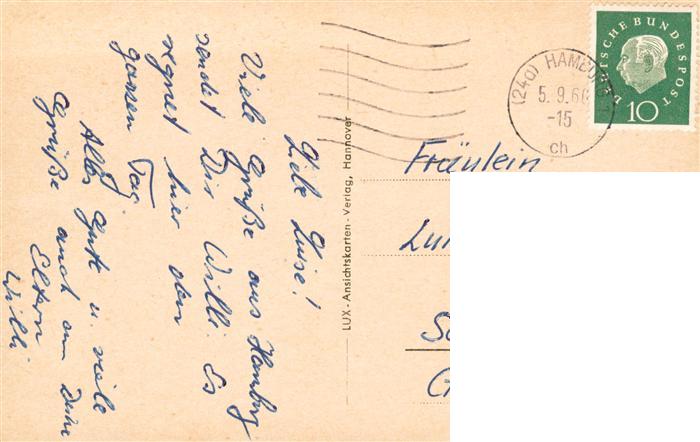 Liebe Luise!
Viele Grüße aus Hamburg
sendet Dir Willi. Es
regnet hier den
ganzen Tag.
Alles Gute u. viele
Grüße auch an Deine
Eltern
Willi
LUX - Ansichtskarten - Verlag, Hannover
DEUTSCHE BUNDESPOST
10
(24a) HAMBURG
5.9.60
-15
ch
Fräulein